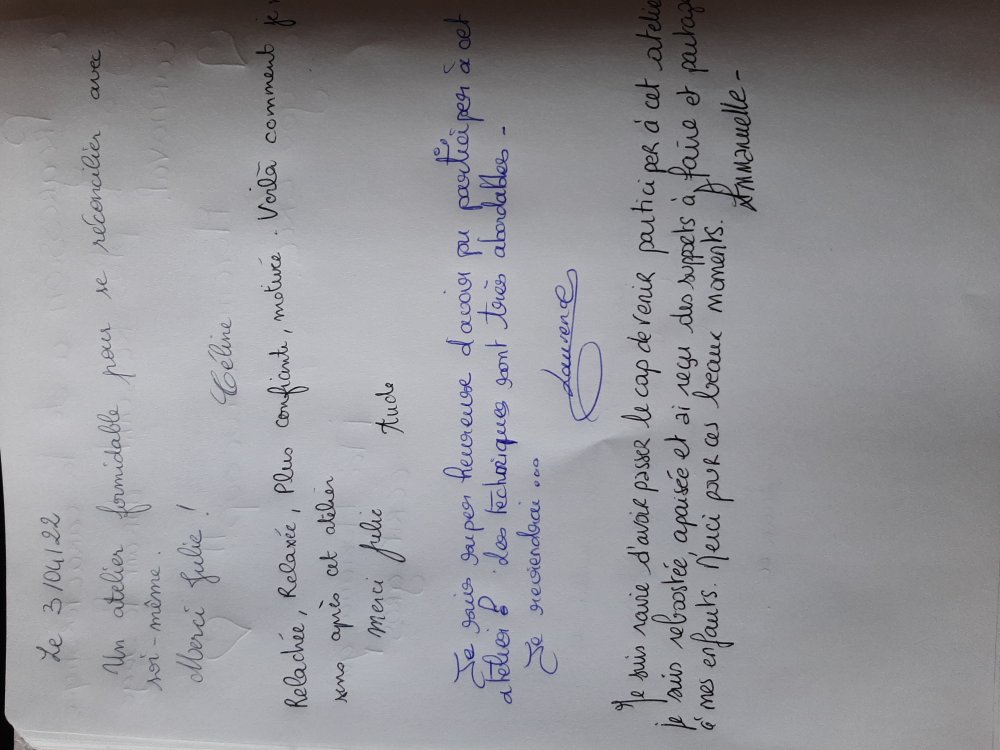 Le 3/04/22
Un atelier formidable pour se réconcilier avec
soi-même.
Merci Julie !
Céline
Relachée, Relaxée, Plus confiante, motivée. Voilà comment je
sens après cet atelier
Merci Julie
Aude
Je suis super heureuse d'avoir pu participer à cet
atelier. Les techniques sont très abordables.
Je reviendrai...
Laurence
Je suis ravie d'avoir passer le cap de venir participer à cet atelie
je suis reboostée, apaisée et ai reçu des supports à faire et partag
à mes enfants. Merci pour ces beaux moments.
Emmanuelle -